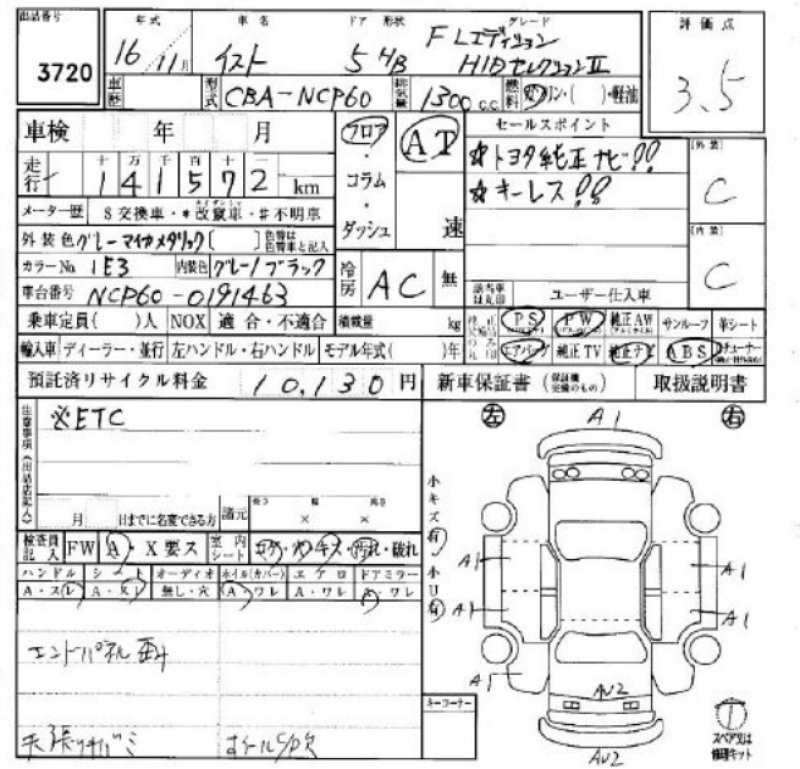 出品番号 3720
年式 16/11月
車名 イスト
ドア 形状 5 HB
グレード FLエディション
HIDセレクションII
評価点 3.5
車歴
型式 CBA-NCP60
排気量 1300 C.C
燃料 ガソリン・( )・軽油
車検 年 月
フロア・コラム・ダッシュ
AT
速
セールスポイント
☆トヨタ純正ナビ!!
☆キーレス!!
外装 C
内装 C
走行 十万千百十一
141572 km
メーター歴 $交換車・*改竄車・#不明車
外装色 グレーマイカメタリック [ ] 色替は色替車と記入
カラーNo. 1E3 内装色 グレー/ブラック
冷房 AC 無
車台番号 NCP60-0191463
該当車は丸印 ユーザー仕入車
乗車定員( )人 NOX 適合・不適合 積載量 kg
PS PW 純正AW サンルーフ 革シート
輸入車 ディーラー・並行 左ハンドル・右ハンドル モデル年式( )年
エアバッグ 純正TV 純正ナビ ABS
預託済リサイクル料金 10,130円
新車保証書 (保証機交換のもの) 取扱説明書
注意事項(出品店記入)
※ETC
月 日までに名変できる方
諸元 長さ 幅 高さ
× ×
検査員記入 FW A・X要ス
室内シート コゲ・穴・キズ・汚れ・破れ
ハンドル シート オーディオ ホイル(カバー) エアロ ドアミラー
A・スレ A・スレ 無し・穴 A・ワレ A・ワレ A・ワレ
エンドパネル
天張り
左 右
小キズ(有)・小U(有)
A1
A1 A1
A1 A1
A1
AU2
AU2
キーコーナー
スペア又は修理キット